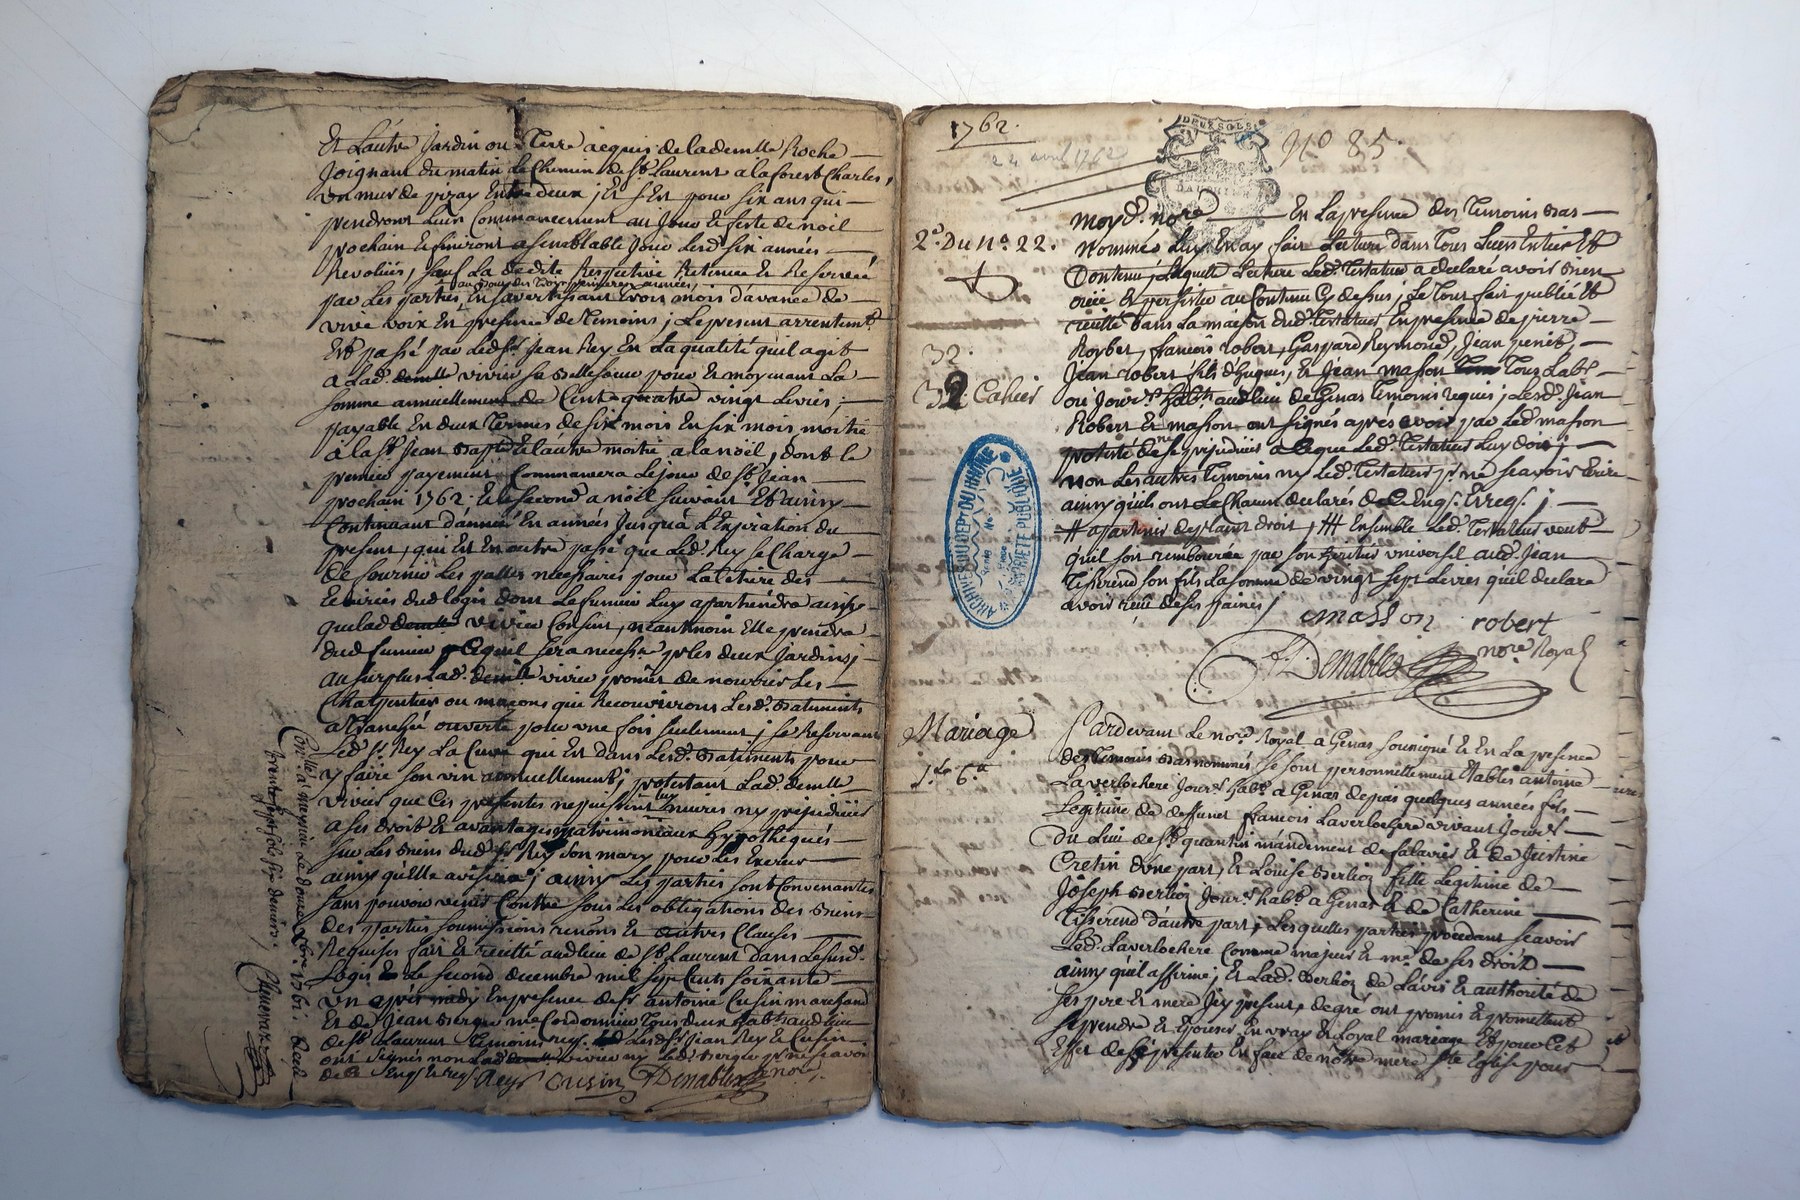 Et L'autre Jardin ou Terre acquis de lademlle Roche
Joignant du matin Le Chemin de St Laurent a laforest Charles,
un mur de pizay Entre deux ; Et C'Est pour six ans qui
prendront leur Commancement au Jour & feste de noel
prochain & finiront asemblable Jour Lesd. six années
Revolües, sauf La dedite Respective Retenüe & Reservée
au bout des trois premieres années,
par Les parties En s'avertissant trois mois d'avance de
vive voix En presence de Temoins ; Le present arrentemt.
Est passé par Led. Sr. Jean Rey En La qualité qu'il agit
a Lad. demlle vivier sa Bellesoeur pour & moyenant La
somme annuellement de Cent quatre vingt Livres ;
payable En deux Termes de six mois En six mois moitié
a la St. Jean Baptte & L'autre moitié a la noël, dont le
premier payement Commancera Le jour de St. Jean
prochain 1762. & le second a noël suivant Et ainsy
Continuant d'année En années Jusqu'a L'Expiration du
present, qui Est En outre passé que Led. Rey se Charge
de fournir Les pailles necessaires pour La litiere des
Ecuries dud. logis dont Le fumier Luy apartiendra ainsy
que lad. demlle vivier Consent, neantmoin Elle prendra
dud. fumier Ce quil sera necessr. pr les deux Jardins ;
au surplus Lad. demlle vivier promet de nourrir Les
Charpentier ou maçons qui Recouvriront Lesd. Batiments
a Tranché ouverte pour une fois seulement ; se Reservant
Led. Sr. Rey La Cuve qui Est dans Lesd. Batiments pour
y faire son vin annuellement ; protestant Lad. demlle
vivier que Ces presentes ne puissent luy nuires ny prejudicier
a ses droit & avantages matrimoniaux hypothequés
sur Les Biens dud. Sr. Rey son mary pour Les Exercer
ainsy qu'Elle avisera ; ainsy Les parties sont Convenantes
sans pouvoir venir Contre sous Les obligations des Biens
des parties soumissions renons & autres Clauses
Requises fait & recitté audlieu de St. Laurent dans Lesusd.
Logis Le second decembre mil sept Cents soixante
un après midy En presence de Sr. antoine Cusin marchand
Et de Jean Berger me Cordonnier Tous deux habts audlieu
de St. Laurent Temoins req. Lesd. Srs Jean Rey & Cusin
ont signés non Lad. demlle vivier ny Led. Berger pr ne sçavoir
de ce Enq. & req. Rey Cusin DDenablex nore.
Conllé a meyzieu Le douze Xbre 1761. Recu
trente sept sols six deniers
1762.
24 avril 1762
DEUX SOLS
No 85.
moyd. nore. En La presence des Temoins Bas
2e. Du No. 22.
nommés Luy En ay fait Lecture dans Tous Leur Entier Et
Contenu ; Laquelle Lecture Led. Testateur a declaré avoir Bien
oüie & persister au Contenu Cy dessus ; Le Tout fait publié Et
recitté Dans La maison dud. Testateur En presence de pierre
32.
Roybet, francois robert, Gaspard Reymond, Jean
32 Cahier
Jean robert fils d'hugues, & Jean masson Tous Lab.
ou Jourrs. habts. audlieu de Genas Temoins requis ; Lesd. Jean
Robert & masson ont signés après avoir par Led. masson
protesté de ne prejudicier a Ce que Led. Testateur Luy doit ;
non Les autres Temoins ny Led. Testateur pr. ne scavoir Ecrire
ainsy qu'ils ont Le Chacun declarés de Ce Enq. & req. ;
# apartenir de plaint droit, ## Ensemble Led. Testateur veut
qu'il soit rembource par son heritier universel aud. Jean
Tisserend son fils La somme de vingt sept Livres qu'il declare
avoir reçüe de ses peines /
ARCHIVES DU DEPt DU RHONE
PROPRIETE PUBLIQUE
masson robert
DDenablex nore Royal
Mariage
Pardevant Le nore. Royal a Genas soussigné & En La presence
des Temoins Basnommés se sont personnellement Etablis antoine
Laverlochere Jourr. habt. a Genas depuis quelques années fils
Legitime de deffunt francois Laverlochere vivant Jourr.
du Lieu de St quantin mandement de falavier & de Justine
Cretin d'une part, & Louise Berlioz fille Legitime de
Joseph Berlioz Jourr. habt. a Genas & de Catherine
Tisserend d'autre part ; Lesquelles parties procedant sçavoir
Led. Laverlochere Comme majeur & me. de ses droits
ainsy qu'il affirme ; & Lad. Berlioz de L'avis & authorité de
ses pere & mere Jcy present, degré ont promis & promettent
se prendre & Epouser En vray & loyal mariage Et pour Cet
Effet de se presenter En face de nôtre mere Ste Eglise pour